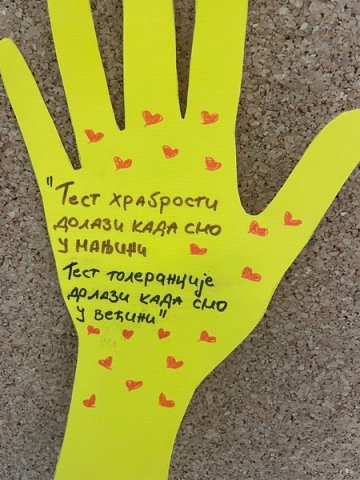 "Тест храбрости
долази када смо
у мањини
Тест толеранције
долази када смо
у већини"